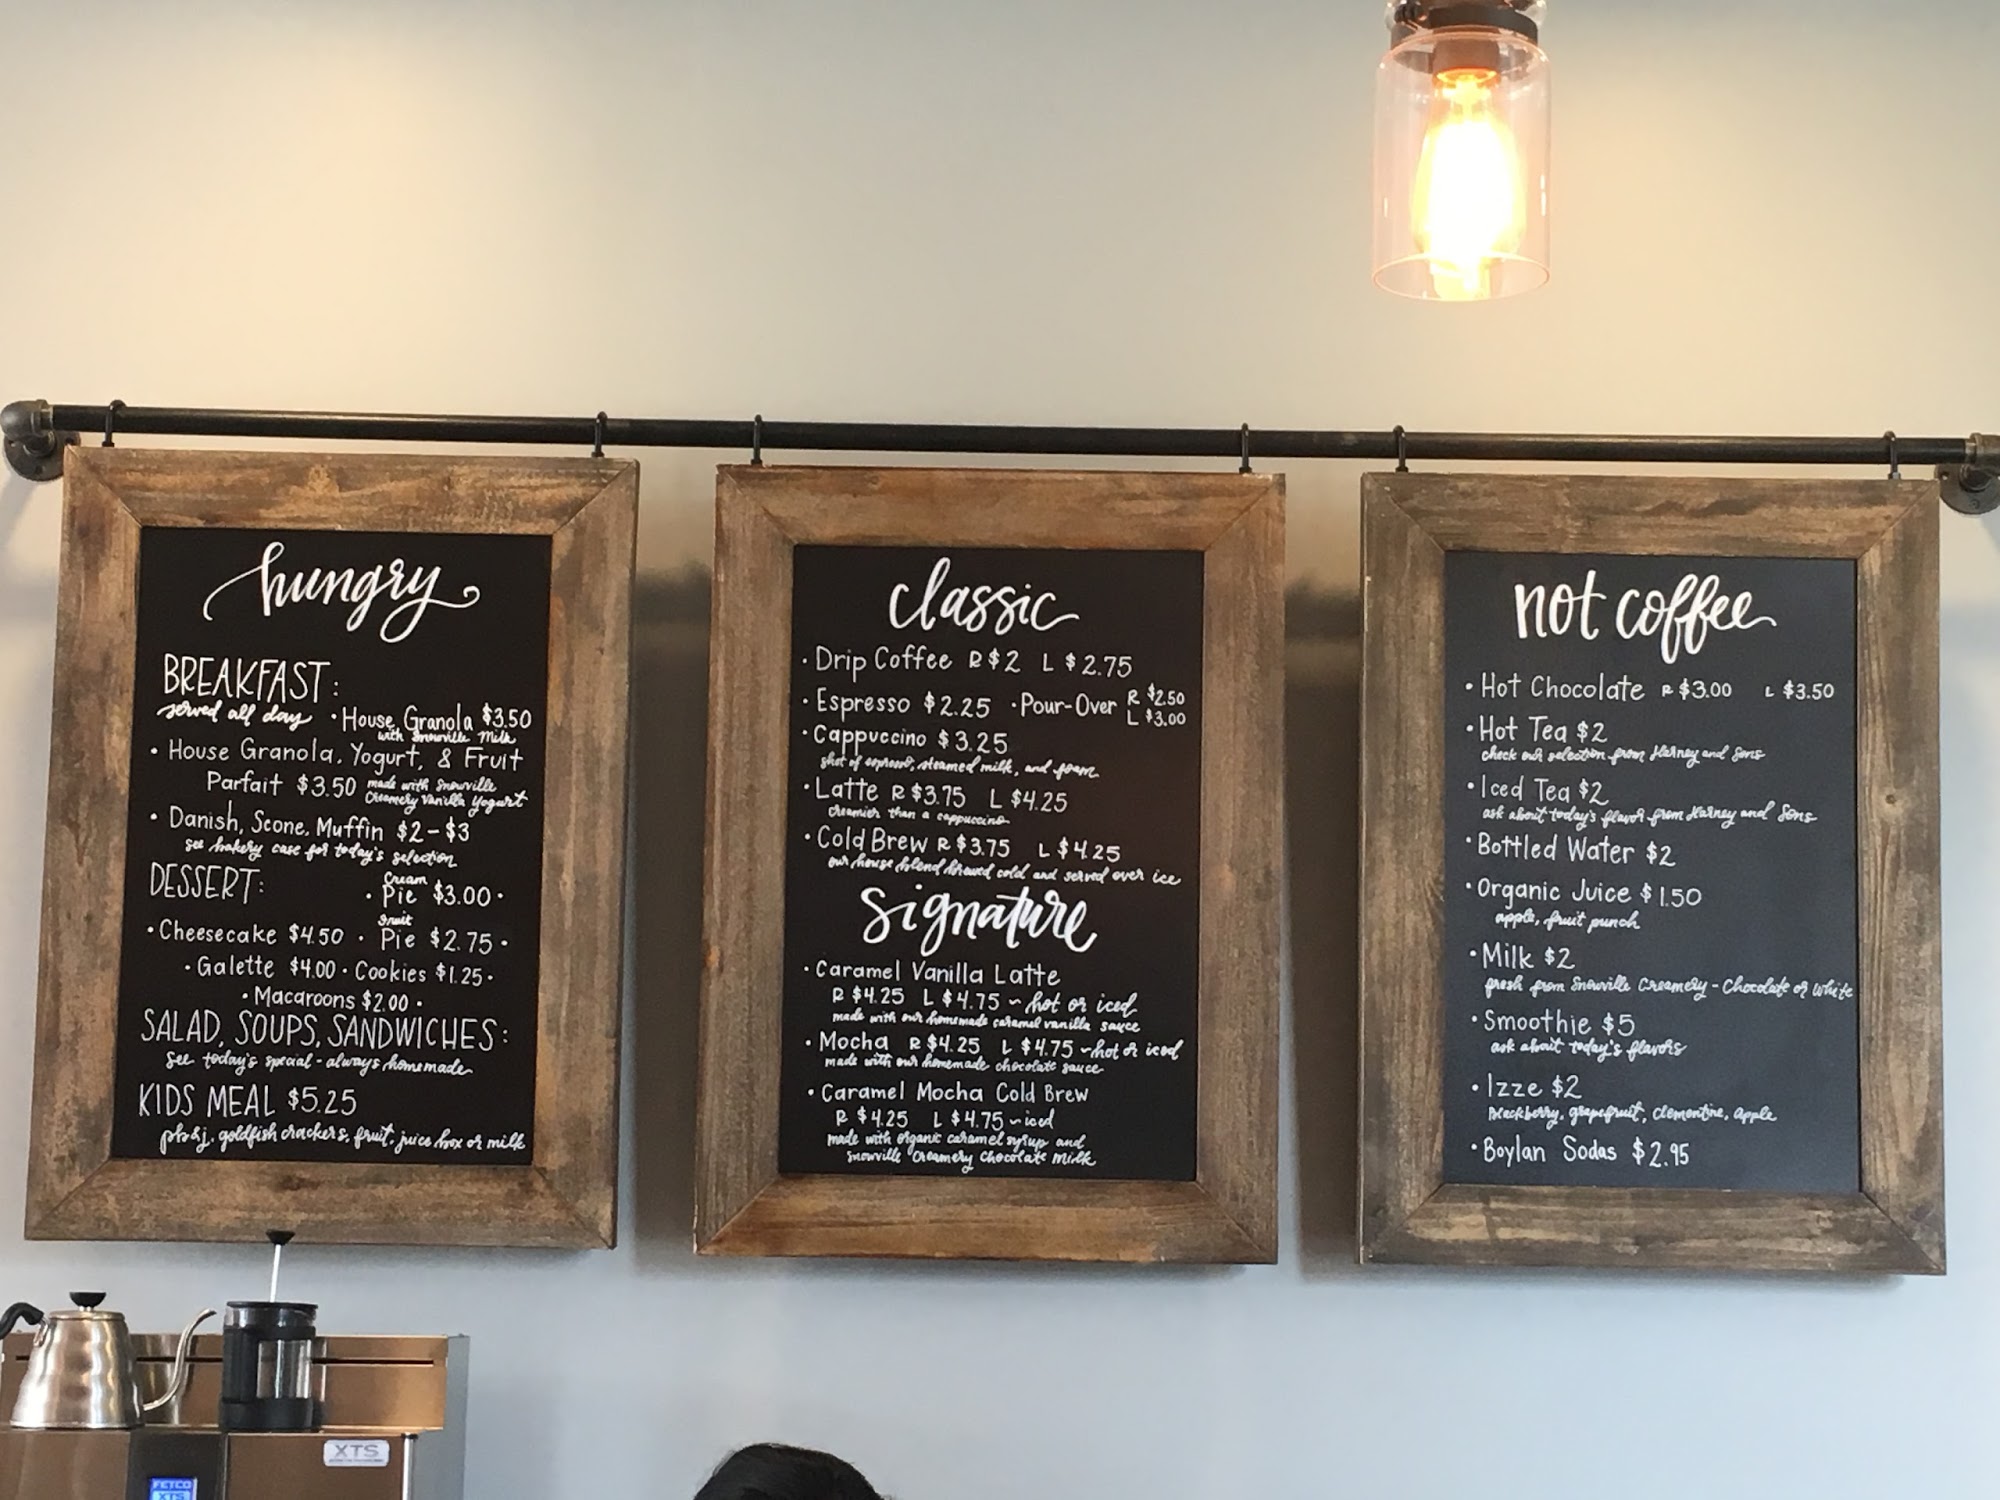 hungry
BREAKFAST:
served all day · House Granola $3.50
with Snowville Milk
· House Granola, Yogurt, & Fruit
Parfait $3.50 made with Snowville
Creamery Vanilla Yogurt
· Danish, Scone, Muffin $2-$3
see bakery case for today's selection
DESSERT:
· Cream Pie $3.00 ·
· Cheesecake $4.50 · Fruit Pie $2.75 ·
· Galette $4.00 · Cookies $1.25 ·
· Macaroons $2.00 ·
SALAD, SOUPS, SANDWICHES:
see today's special - always homemade
KIDS MEAL $5.25
pb&j, goldfish crackers, fruit, juice box or milk
classic
· Drip Coffee R $2 L $2.75
· Espresso $2.25 · Pour-Over R $2.50
L $3.00
· Cappuccino $3.25
shot of espresso, steamed milk, and foam
· Latte R $3.75 L $4.25
creamier than a cappuccino
· Cold Brew R $3.75 L $4.25
our house blend brewed cold and served over ice
Signature
· Caramel Vanilla Latte
R $4.25 L $4.75 ~ hot or iced
made with our homemade caramel vanilla sauce
· Mocha R $4.25 L $4.75 ~ hot or iced
made with our homemade chocolate sauce
· Caramel Mocha Cold Brew
R $4.25 L $4.75 ~ iced
made with organic caramel syrup and
Snowville Creamery Chocolate Milk
not coffee
· Hot Chocolate R $3.00 L $3.50
· Hot Tea $2
check our selection from Harney and Sons
· Iced Tea $2
ask about today's flavor from Harney and Sons
· Bottled Water $2
· Organic Juice $1.50
apple, fruit punch
· Milk $2
fresh from Snowville Creamery - Chocolate or White
· Smoothie $5
ask about today's flavors
· Izze $2
Blackberry, grapefruit, clementine, apple
· Boylan Sodas $2.95
XTS
FETCO
XTS